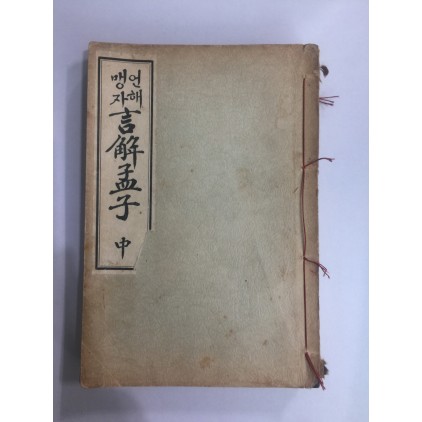 언해
맹자
言解孟子
中